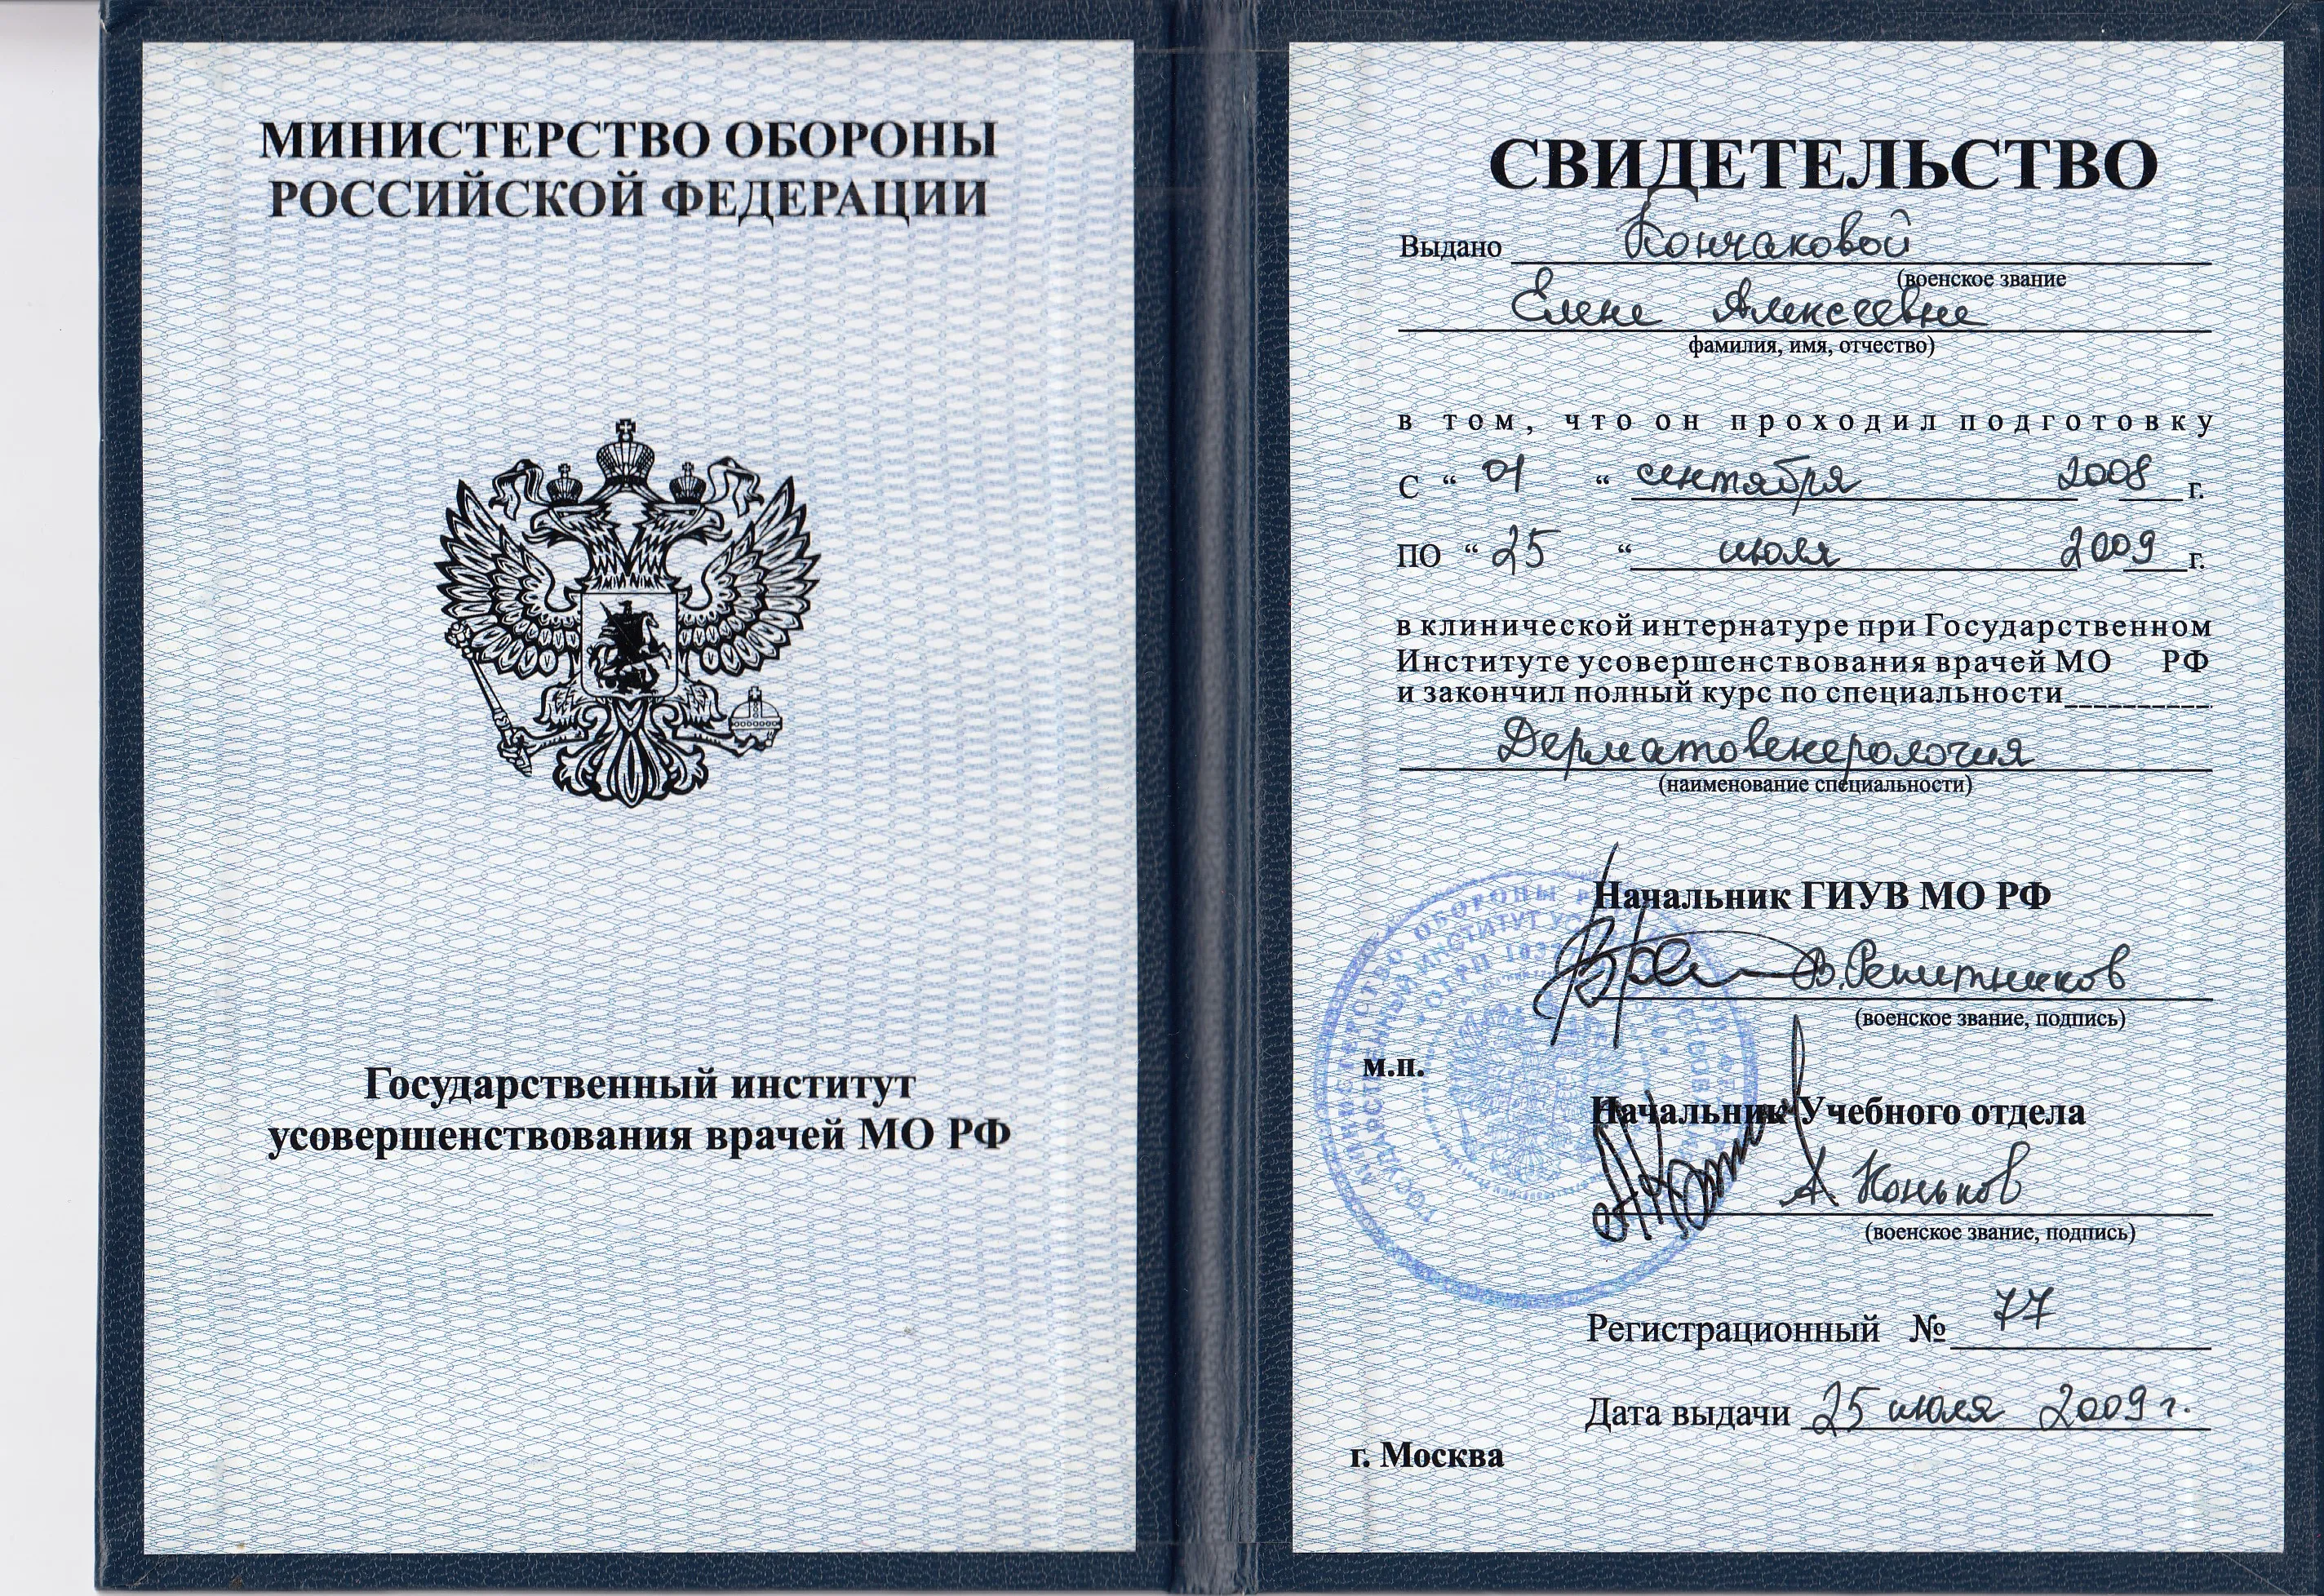 МИНИСТЕРСТВО ОБОРОНЫ
РОССИЙСКОЙ ФЕДЕРАЦИИ
Государственный институт
усовершенствования врачей МО РФ
СВИДЕТЕЛЬСТВО
Выдано Кончаковой
(военское звание
Елене Алексеевне
фамилия, имя, отчество)
в том, что он проходил подготовку
С “ 01 “ сентября 2008 г.
ПО “ 25 “ июля 2009 г.
в клинической интернатуре при Государственном
Институте усовершенствования врачей МО РФ
и закончил полный курс по специальности
Дерматовенерология
(наименование специальности)
Начальник ГИУВ МО РФ
В. Решитников
(военское звание, подпись)
м.п.
Начальник Учебного отдела
А Коньков
(военское звание, подпись)
Регистрационный № 77
Дата выдачи 25 июля 2009 г.
г. Москва